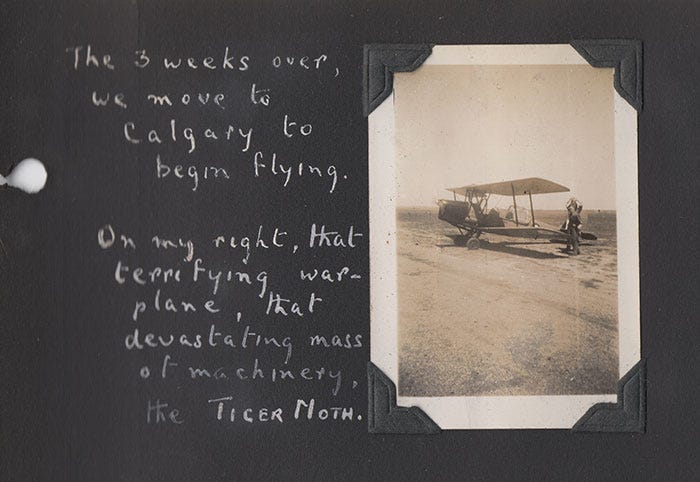 The 3 weeks over,
we move to
Calgary to
begin flying.
On my right, that
terrifying war-
plane, that
devastating mass
of machinery,
the TIGER MOTH.